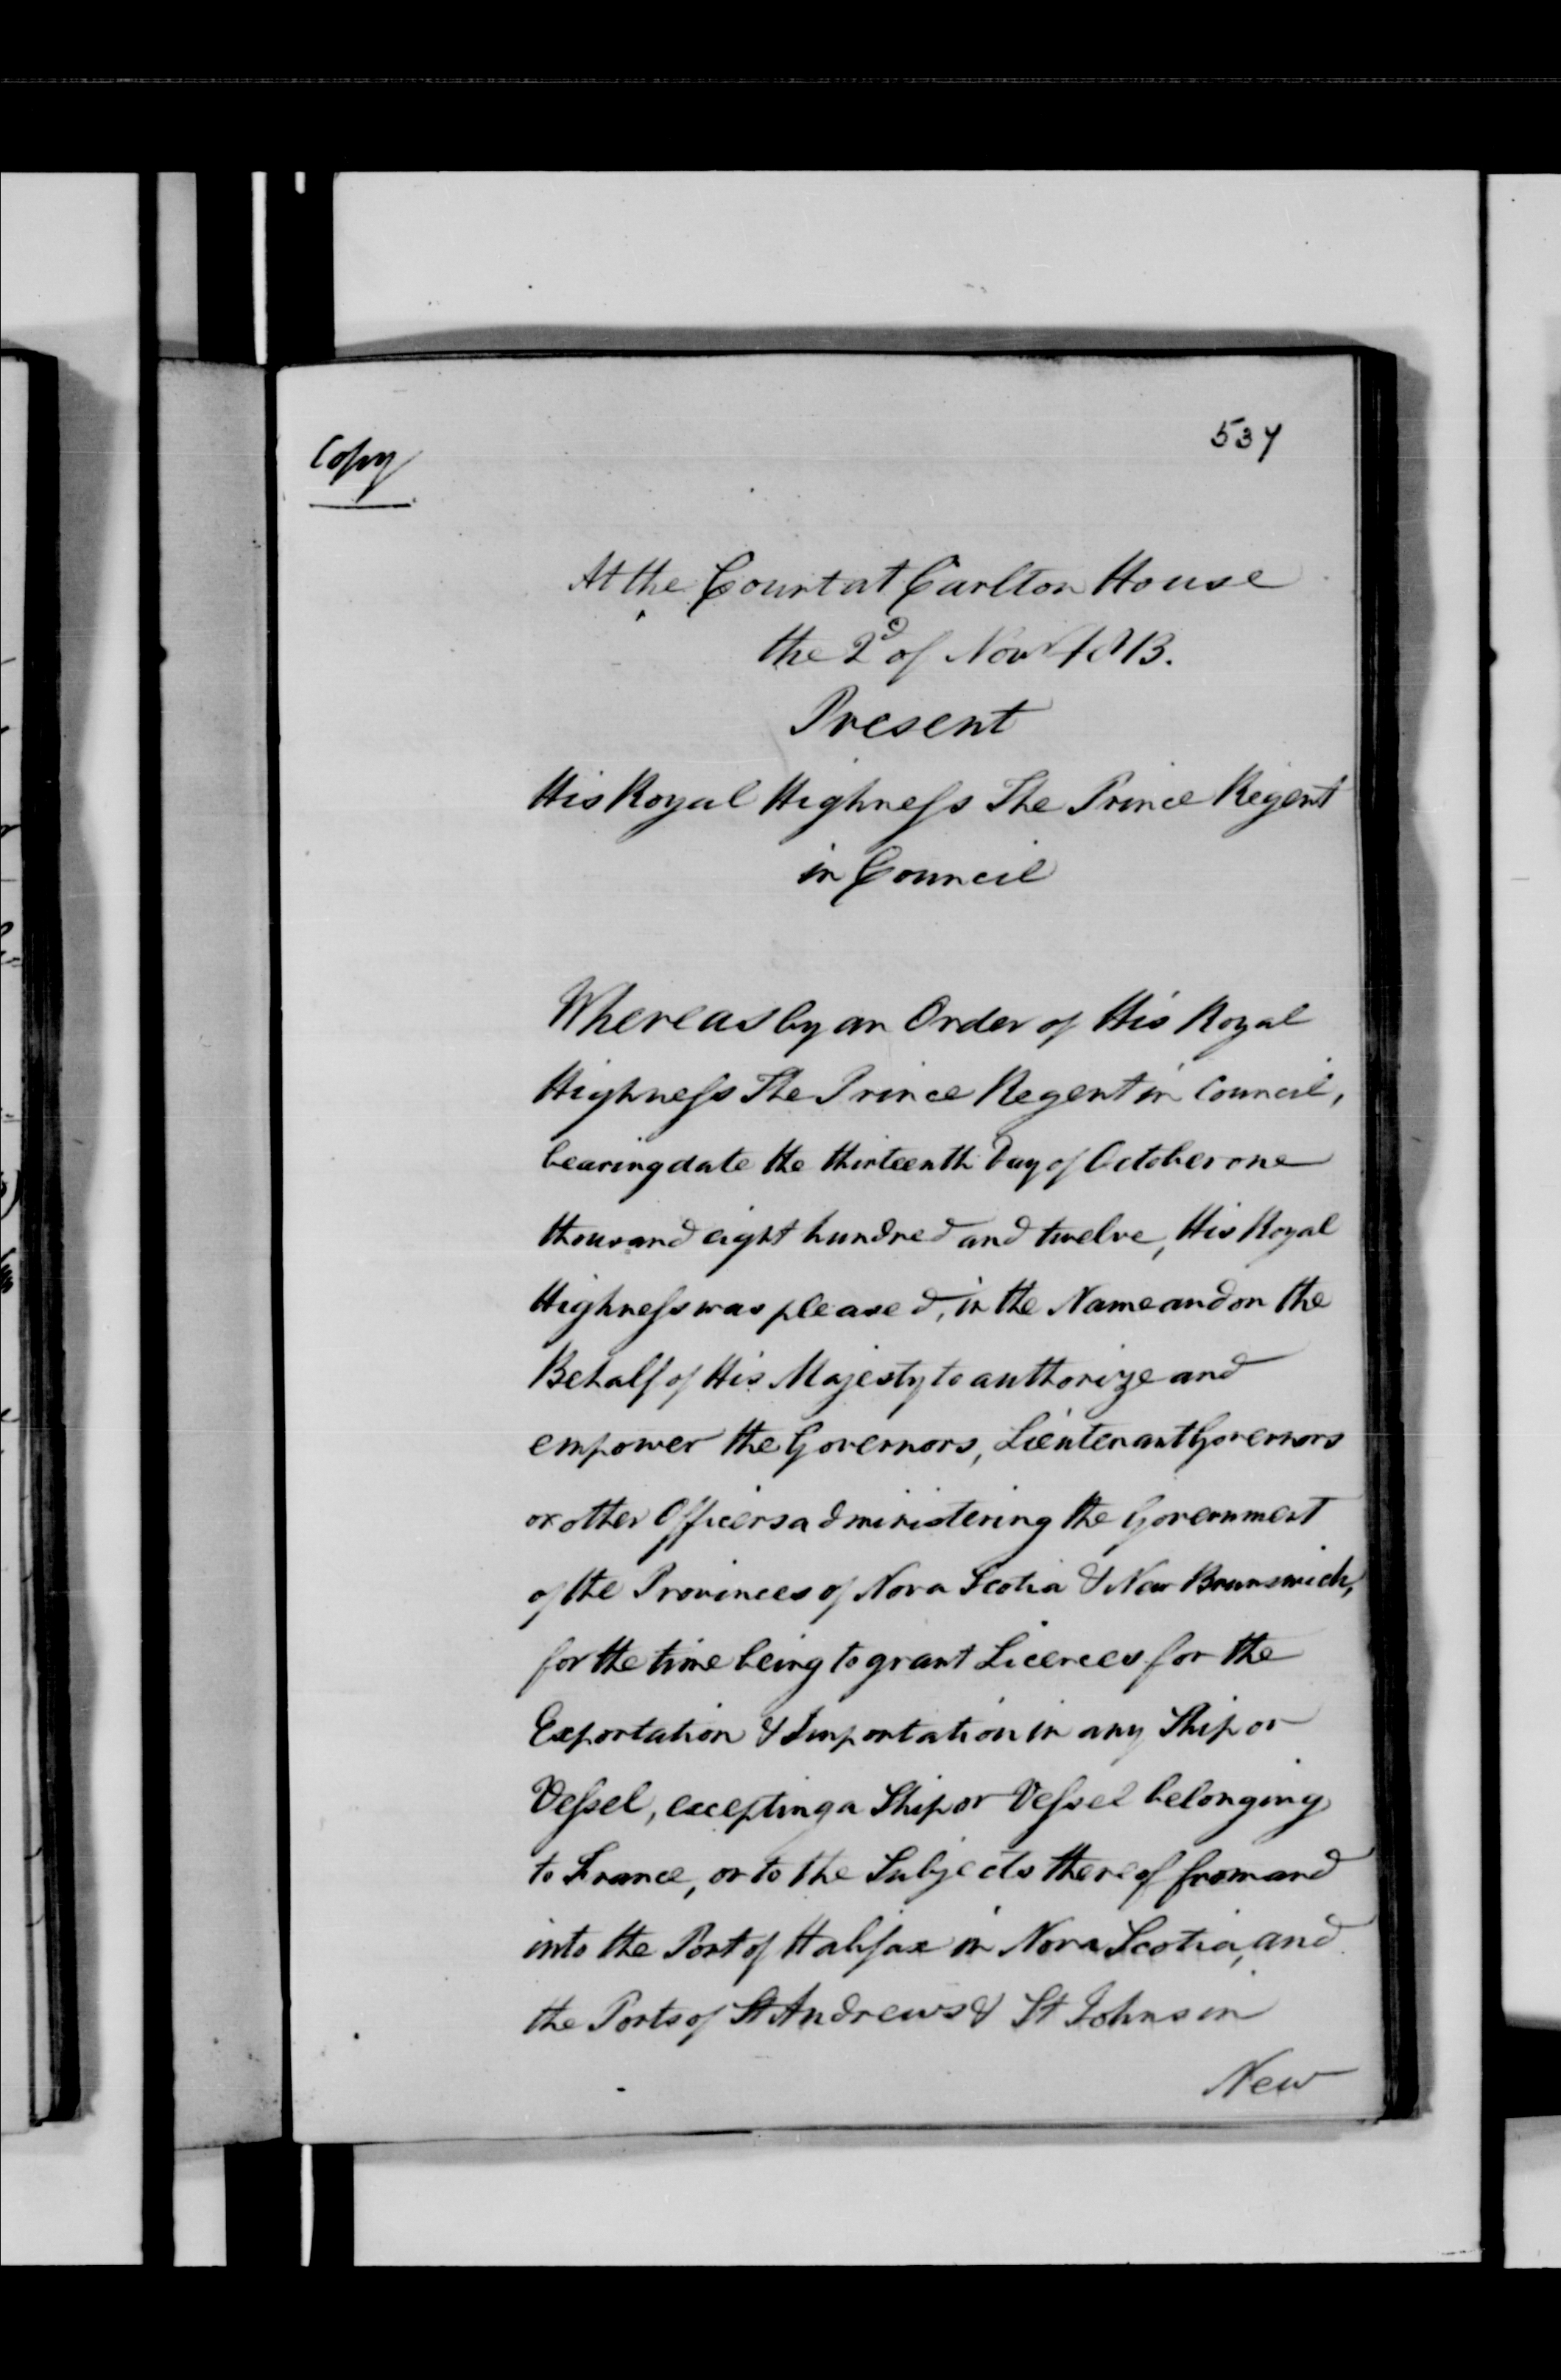 Copy
537
At the Court at Carlton House
the 2d of Novr 1813.
Present
His Royal Highness The Prince Regent
in Council
Whereas by an Order of His Royal
Highness The Prince Regent in Council,
bearing date the thirteenth Day of October one
thousand eight hundred and twelve, His Royal
Highness was pleased, in the Name and on the
Behalf of His Majesty to authorize and
empower the Governors, Lieutenant Governors
or other Officers administering the Government
of the Provinces of Nova Scotia & New Brunswick,
for the time being to grant Licences for the
Exportation & Importation in any Ship or
Vessel, excepting a Ship or Vessel belonging
to France, or to the Subjects thereof from and
into the Port of Halifax in Nova Scotia, and
the Ports of St Andrews & St Johns in
New